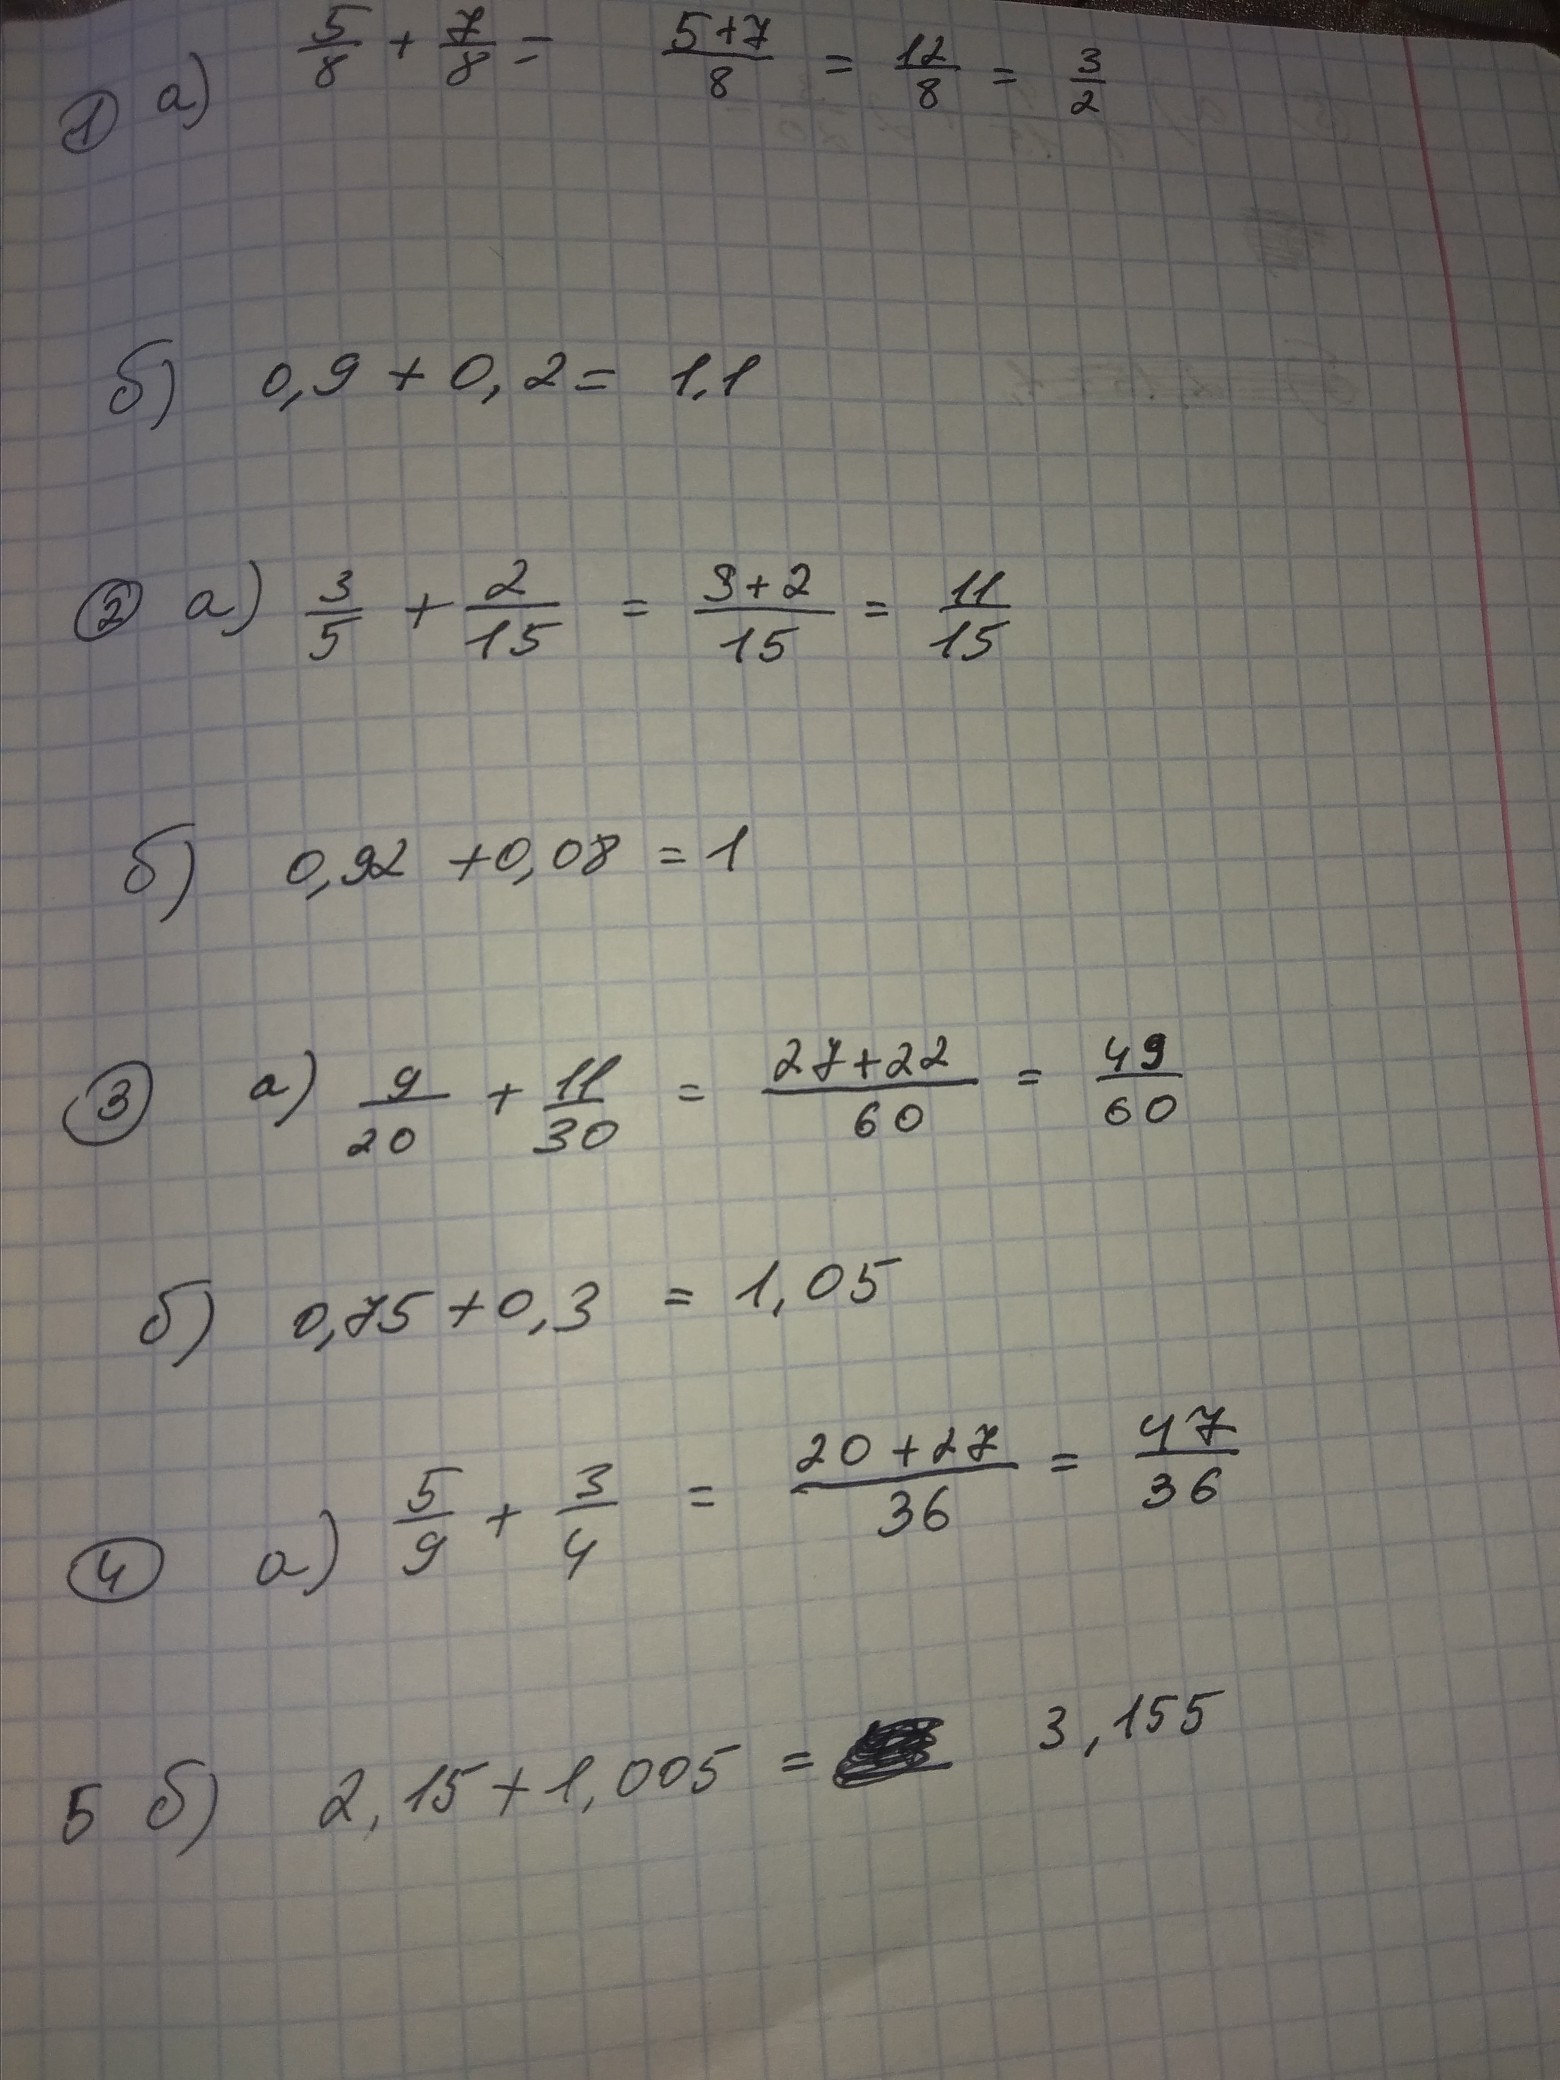 1 а) 5/8 + 7/8 = 5+7/8 = 12/8 = 3/2
б) 0,9 + 0,2 = 1,1
2 а) 3/5 + 2/15 = 9+2/15 = 11/15
б) 0,92 + 0,08 = 1
3 а) 9/20 + 11/30 = 27+22/60 = 49/60
б) 0,75 + 0,3 = 1,05
4 а) 5/9 + 3/4 = 20+27/36 = 47/36
5 б) 2,15 + 1,005 = 3,155